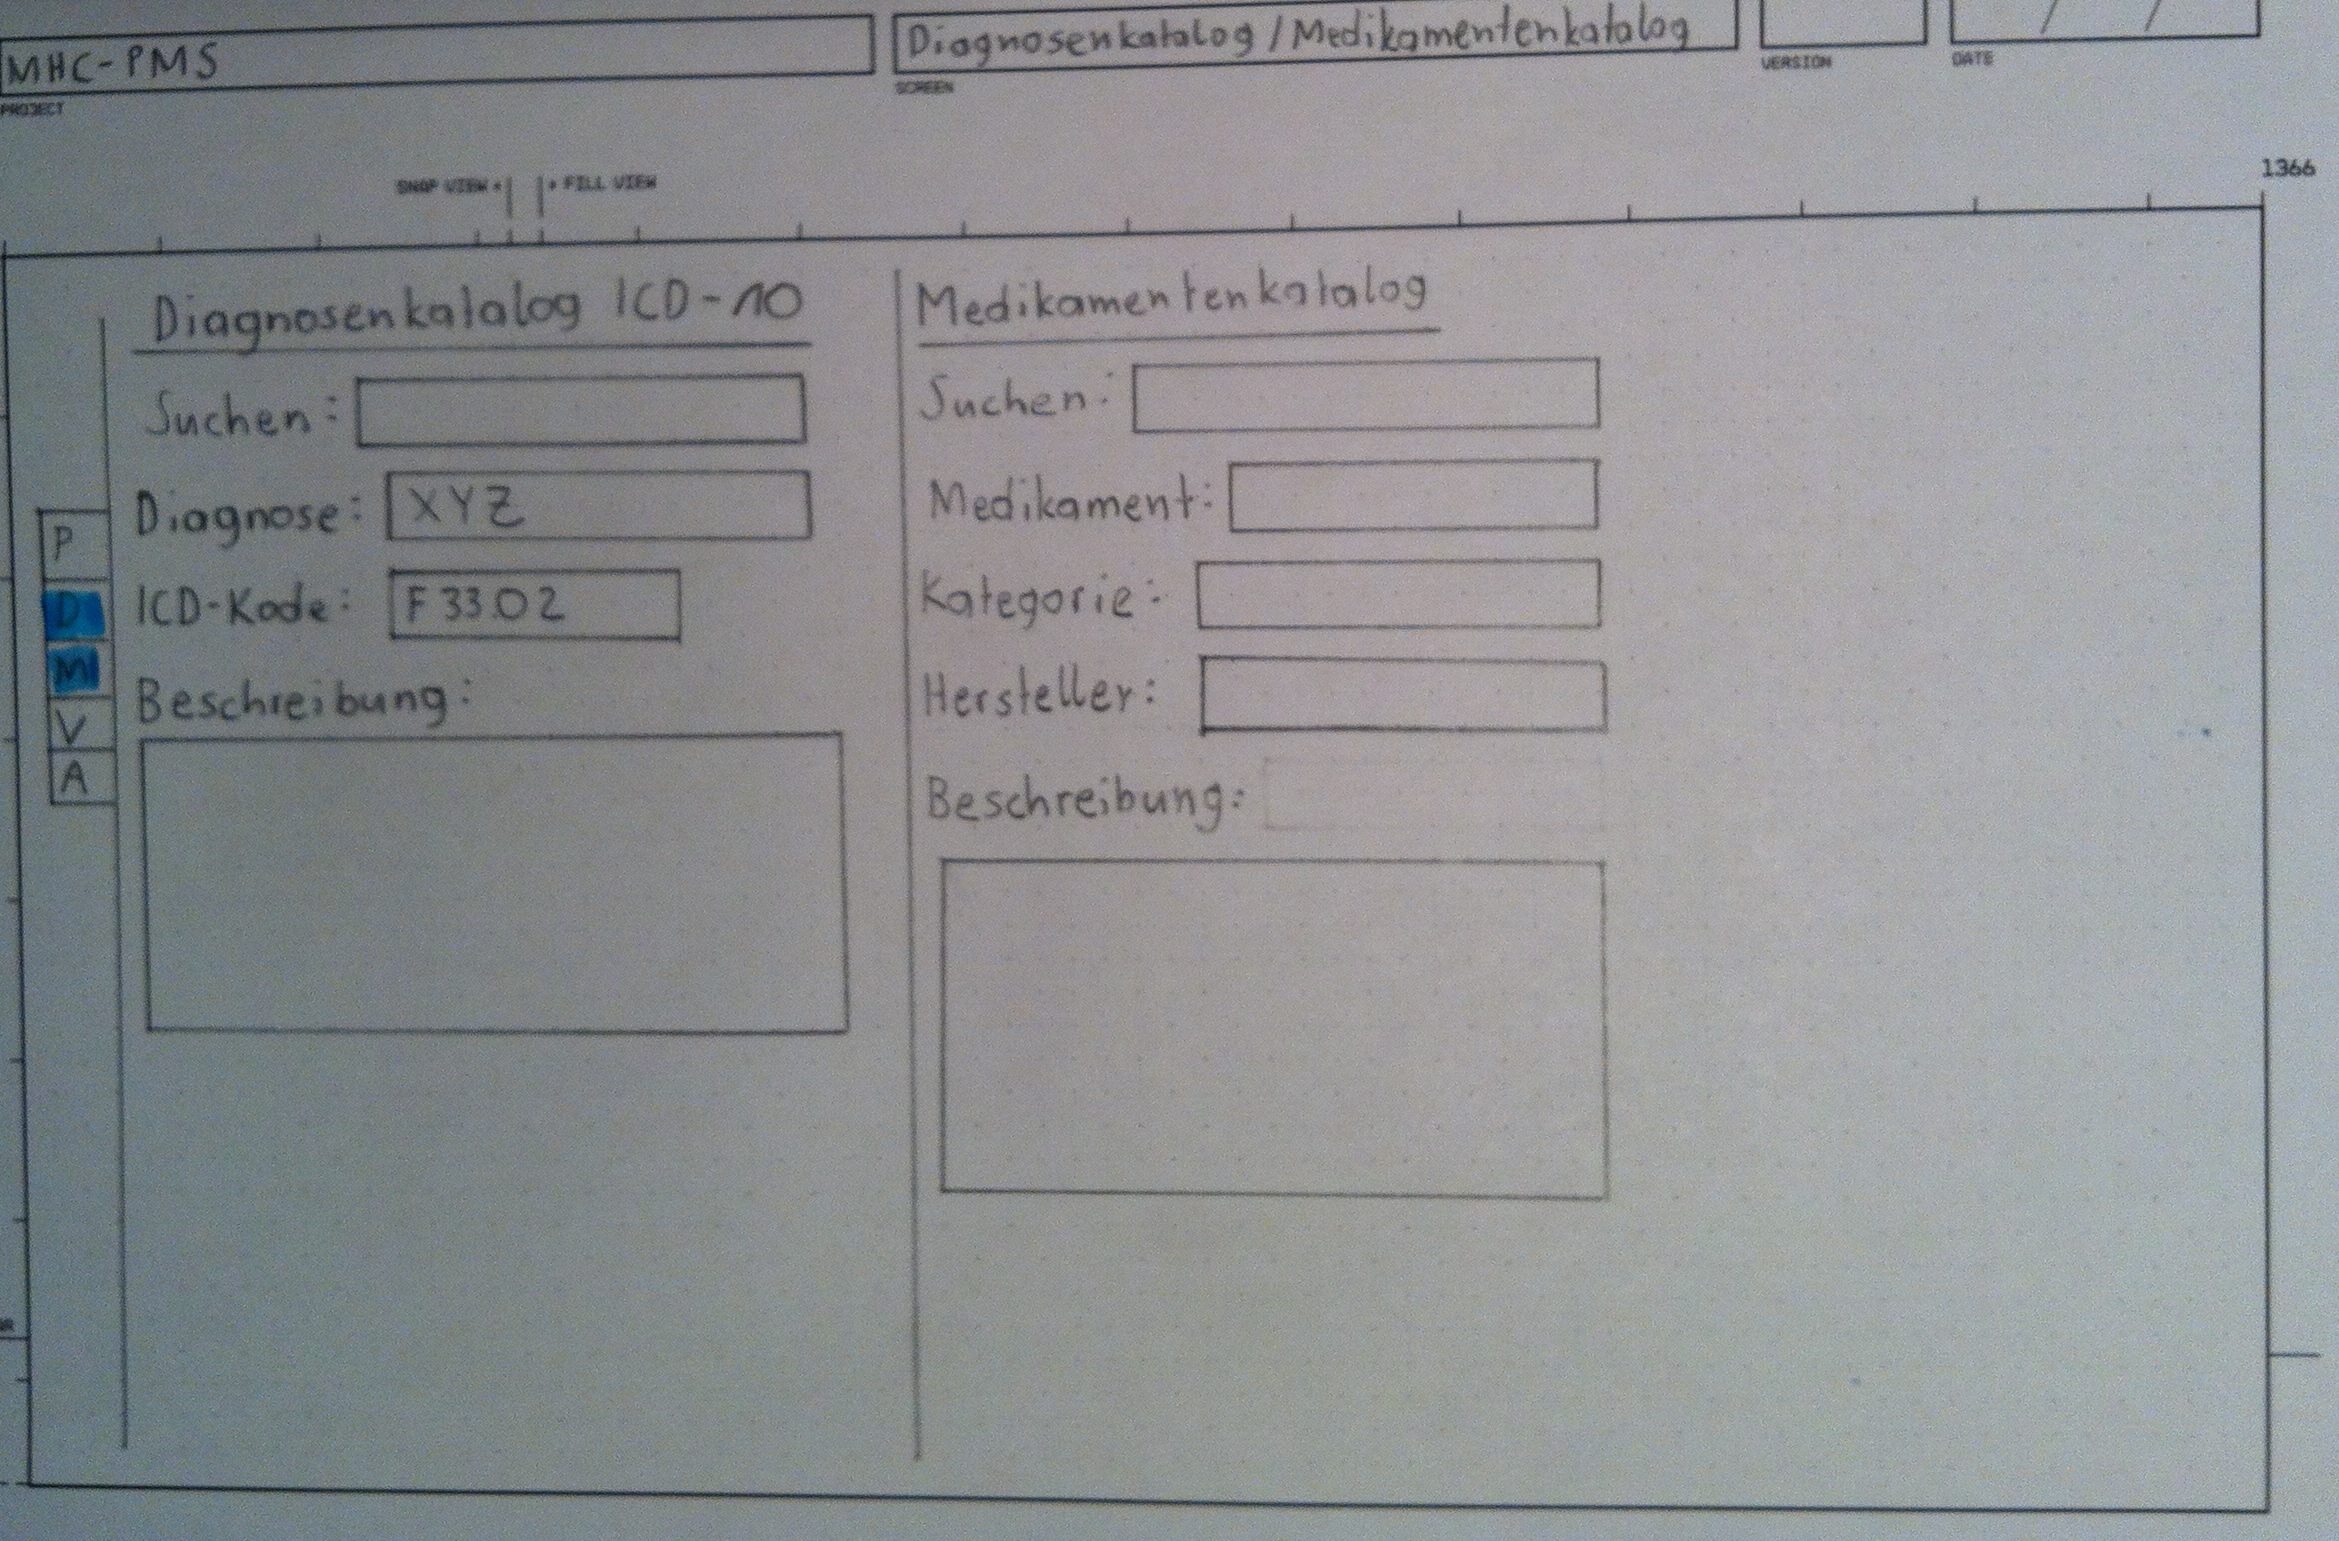 MHC-PMS
PROJECT
Diagnosenkatalog / Medikamentenkatalog
SCREEN
VERSION
/ /
DATE
SNAP VIEW
FILL VIEW
1366
Diagnosenkatalog ICD-10
Suchen:
Diagnose: XYZ
ICD-Kode: F33.02
Beschreibung:
P
D
M
V
A
Medikamentenkatalog
Suchen:
Medikament:
Kategorie:
Hersteller:
Beschreibung: